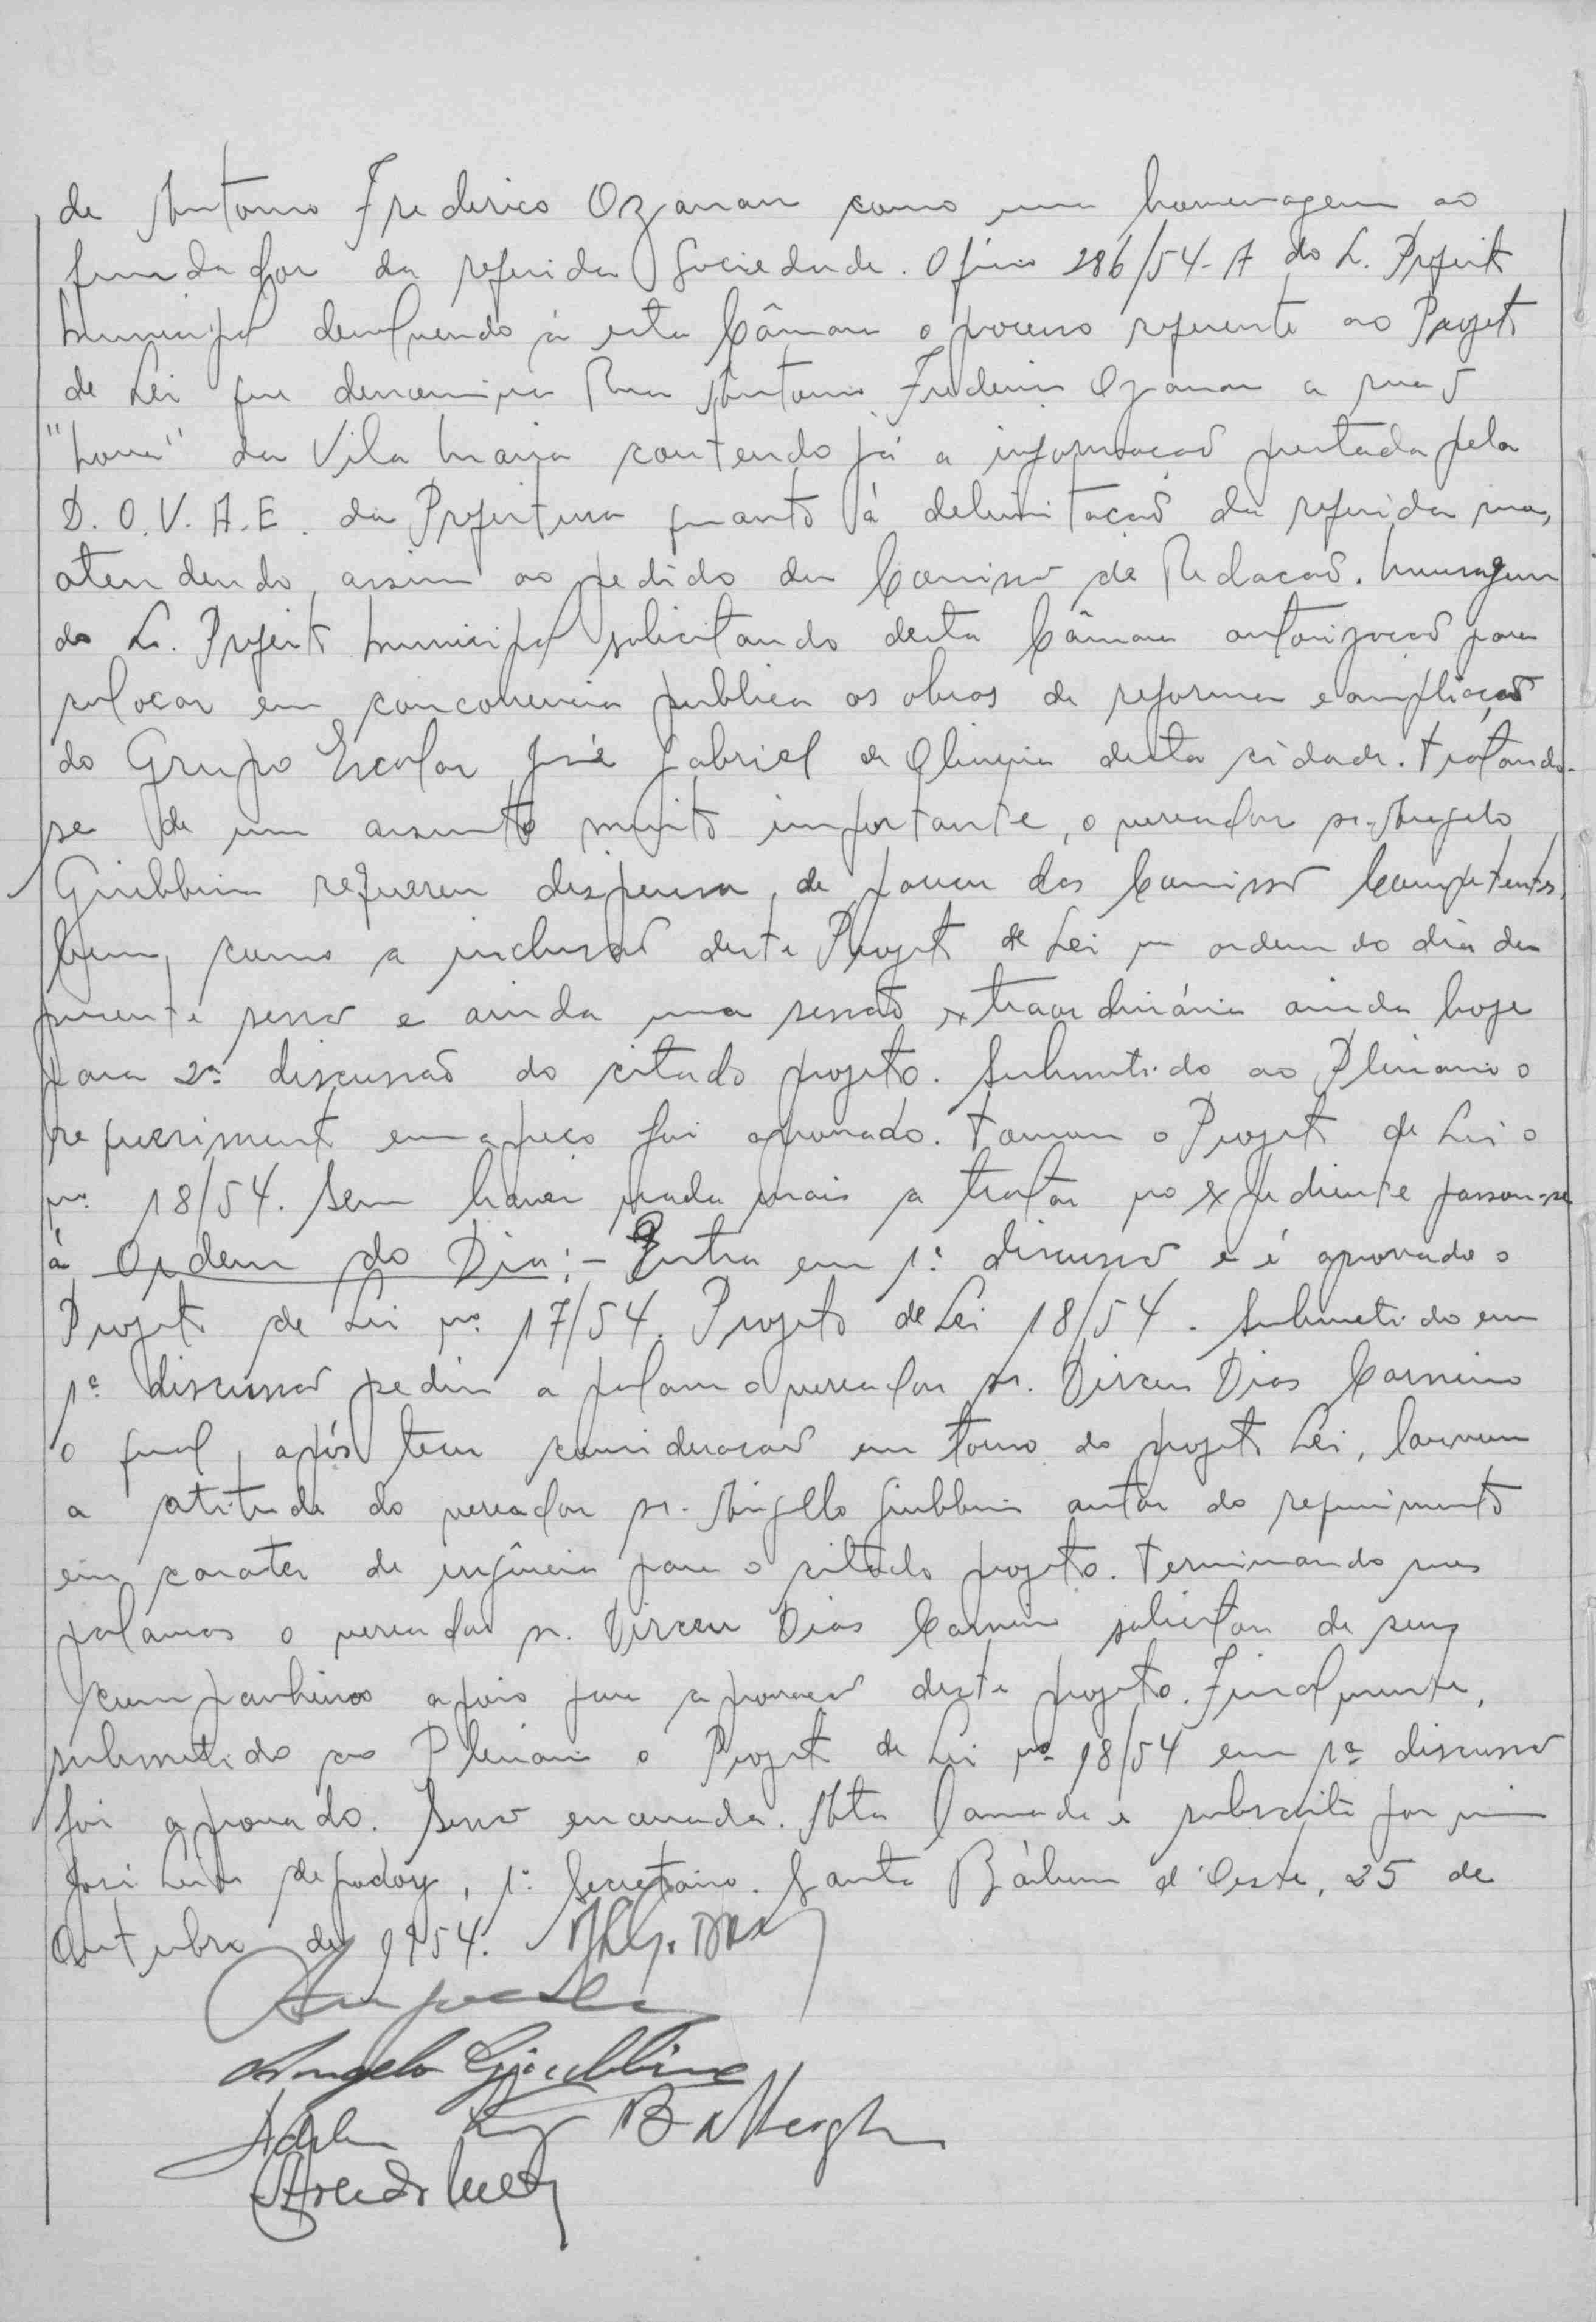 de Antonio Frederico Ozanan como uma homenagem ao
fundador da referida Sociedade. Oficio 286/54-A do S. Prefeito
Municipal devolvendo á esta Câmara o processo referente ao Projeto
de Lei que denomina Rua Antonio Frederico Ozanan a rua 5
"Nova" da Vila Maria contendo já a informação prestada pela
D.O.V.A.E. da Prefeitura quanto á delimitação da referida rua,
atendendo assim ao pedido da Comissão de Redação. Mensagem
do S. Prefeito Municipal solicitando desta Câmara autorização para
colocar em concorrencia publica as obras de reforma e ampliação
do Grupo Escolar José Gabriel de Oliveira desta cidade. Tratando-
se de um assunto muito importante, o vereador sr. Angelo
Giubbina requereu dispensa de parecer das Comissões Competentes,
bem como a inclusão deste Projeto de Lei na ordem do dia da
presente sessão e ainda uma sessão extraordinária ainda hoje
para 2ª discussão do citado projeto. Submetido ao Plenario o
requerimento em apreço foi aprovado. Tomou o Projeto de Lei o
nº 18/54. Sem haver nada mais a tratar no expediente passou-se
á Ordem do Dia:- Entra em 1ª discussão e é aprovado o
Projeto de Lei nº 17/54. Projeto de Lei 18/54. Submetido em
1ª discussão pediu a palavra o vereador sr. Dirceu Dias Carneiro
o qual, após tecer consideração em torno do projeto Lei, louvou
a atitude do vereador sr. Angello Giubbina autor do requerimento
em carater de urgência para o citado projeto. Terminando suas
palavras o vereador sr. Dirceu Dias Carneiro solicitou de seus
companheiros apoio para aprovação deste projeto. Finalmente,
submetido ao Plenario o Projeto de Lei nº 18/54 em 1ª discussão
foi aprovado. Sessão encerrada. Ata lavrada e subscrita por mim
José Luis de Godoy, 1º Secretário. Santa Bárbara d'Oeste, 25 de
Outubro de 1954.
Angelo Giubbina